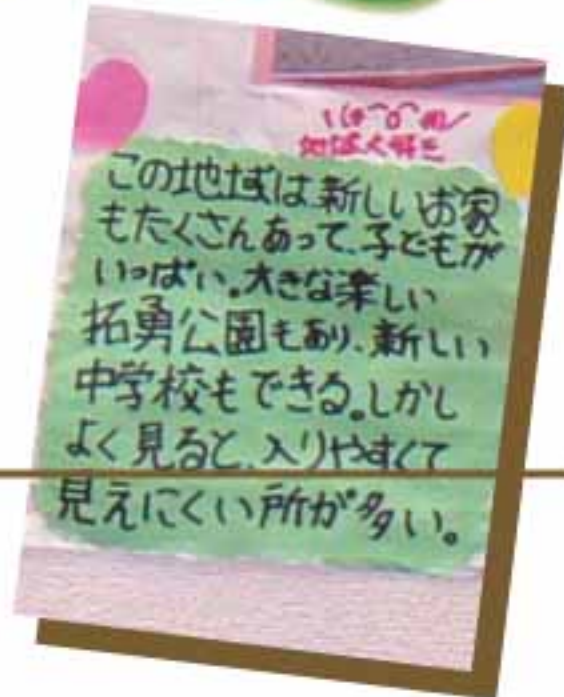 この地域は新しいお家
もたくさんあって、子どもが
いっぱい。大きな楽しい
拓勇公園もあり、新しい
中学校もできる。しかし
よく見ると、入りやすくて
見えにくい所が多い。